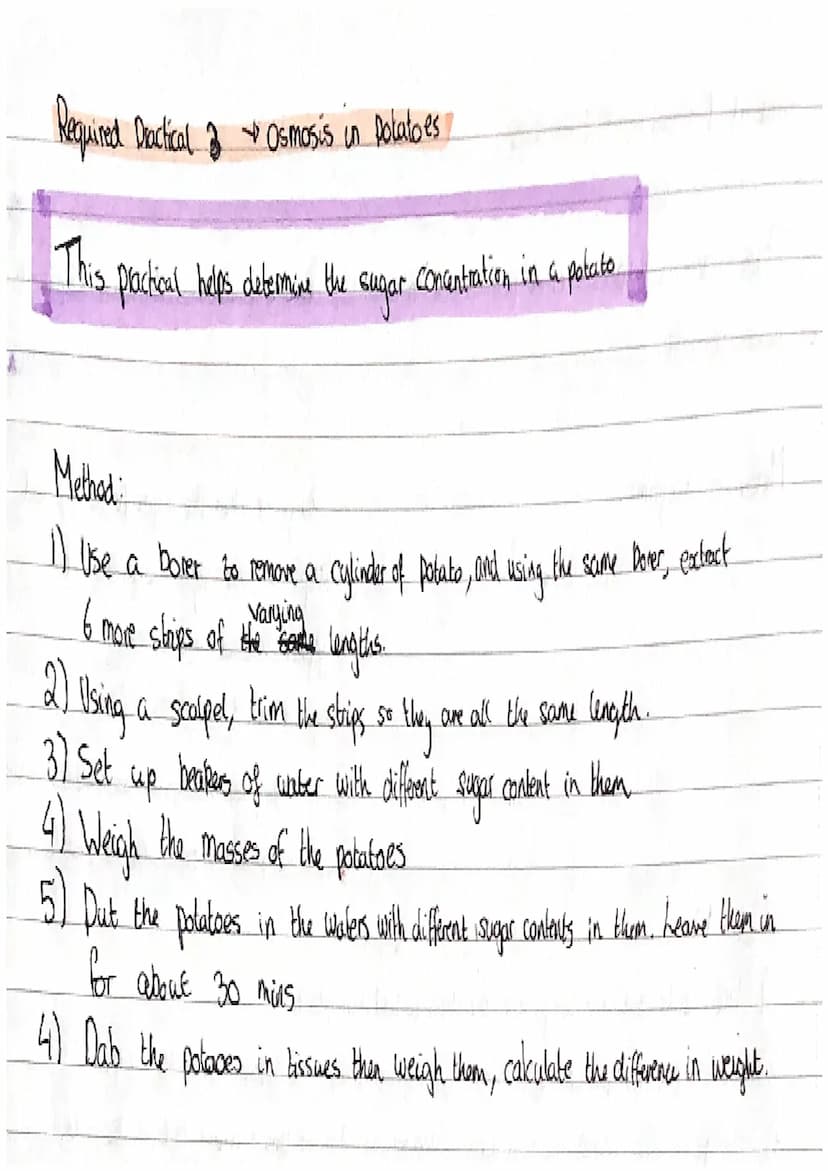 Required Practical 3 → Osmosis in Potatoes
This practical helps determine the sugar concentration in a potato
Method:
1) Use a borer to remove a cylinder of potato, and using the same borer, extract
varying
6 more strips of the same lengths.
2) Using a scalpel, trim the strips so they are all the same length.
3) Set up beakers of water with different sugar content in them
4) Weigh the masses of the potatoes
5) Put the potatoes in the waters with different sugar contents in them. Leave them in
for about 30 mins
4) Dab the potaoes in tissues then weigh them, calculate the difference in weight.